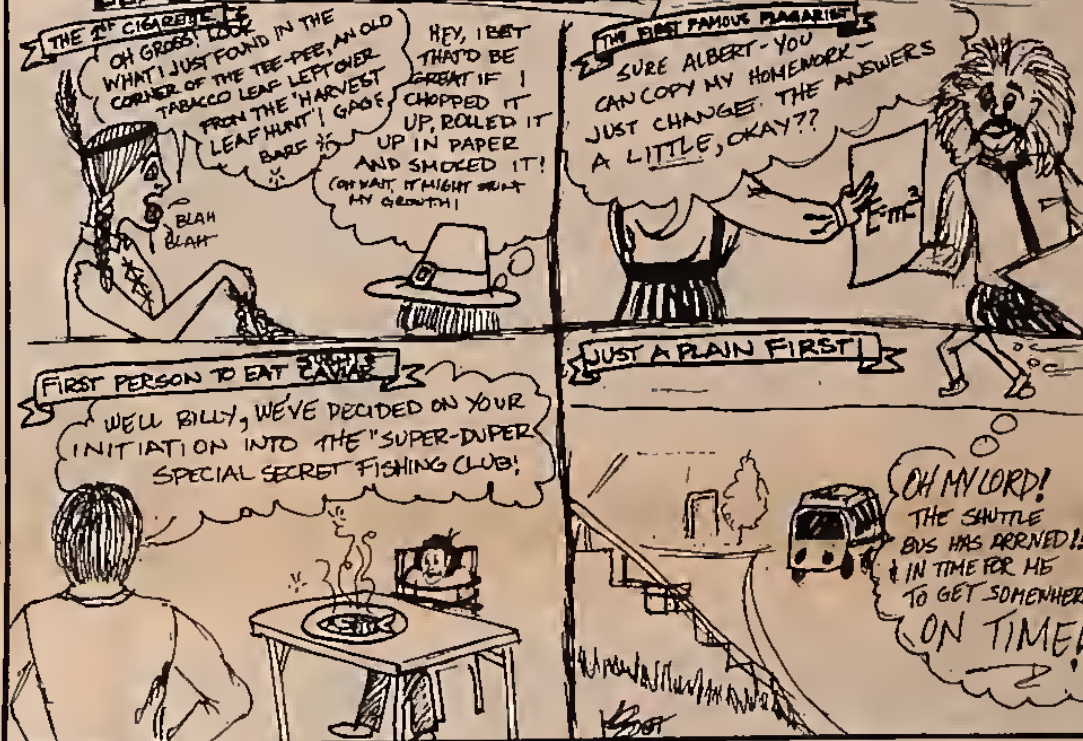 THE 1ST CIGARETTE
OH GROSS! LOOK
WHAT I JUST FOUND IN THE
CORNER OF THE TEE-PEE, AN OLD
TABACCO LEAF LEFTOVER
FROM THE "HARVEST
LEAF HUNT"! GAGE
BARF
BLAH
BLAH
HEY, I BET
THAT'D BE
GREAT IF I
CHOPPED IT
UP, ROLLED IT
UP IN PAPER
AND SMOKED IT!
(OH WAIT, IT MIGHT STUNT
MY GROWTH!
THE FIRST FAMOUS PLAGARIST
SURE ALBERT - YOU
CAN COPY MY HOMEWORK -
JUST CHANGE THE ANSWERS
A LITTLE, OKAY??
E=mc2
FIRST PERSON TO EAT SUSHI & CAVIAR
WELL BILLY, WE'VE DECIDED ON YOUR
INITIATION INTO THE "SUPER-DUPER
SPECIAL SECRET FISHING CLUB!
JUST A PLAIN FIRST!
OH MY LORD!
THE SHUTTLE
BUS HAS ARRIVED!!
& IN TIME FOR ME
TO GET SOMEWHERE
ON TIME!